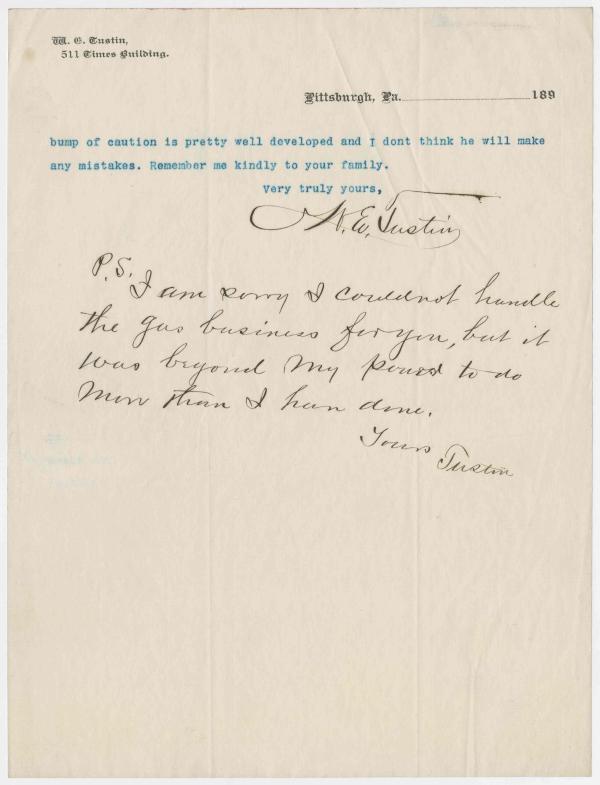 W. E. Tustin,
511 Times Building.
Pittsburgh, Pa. 189
bump of caution is pretty well developed and I dont think he will make
any mistakes. Remember me kindly to your family.
Very truly yours,
W. E. Tustin
P.S.
I am sorry I could not handle
the gas business for you, but it
was beyond my power to do
more than I have done.
Yours
Tustin